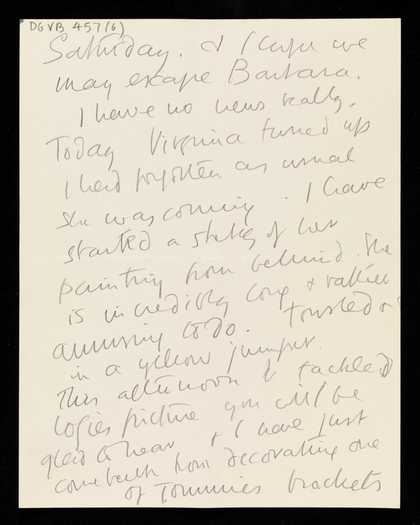 DGVB 457(6)
Saturday. & I hope we
may escape Barbara.
I have no news really.
Today Virginia turned up
I had forgotten as usual
she was coming. I have
started a study of her
painting from behind. She
is incredibly long & rather
amusing to do. Tousled
in a yellow jumper.
This afternoon I tackled
Logies picture you will be
glad to hear & I have just
come back from decorating one
of Tommies brackets